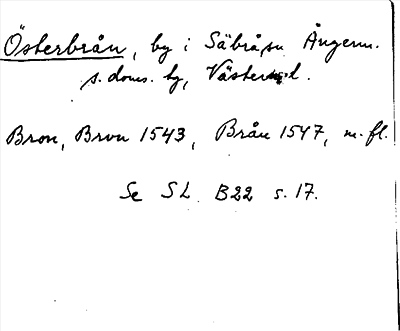 Österbrån, by i Säbrå sn Ångerm.
s. doms. tg, Västern. l.
Bron, Bron 1543, Brån 1547, m. fl.
Se SL B22 s. 17.